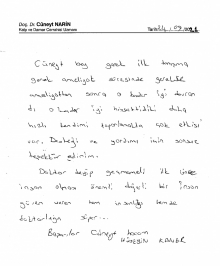 Doç. Dr. Cüneyt NARİN
Kalp ve Damar Cerrahisi Uzmanı
Cüneyt bey gerek ilk tanışma
gerek ameliyat süresinde gerekse
ameliyattan sonra o kadar iyi davran
dı o kadar iyi hissettirdi daha
hızlı kendimi toparlamamda çok etkisi
var. Desteği ve yardımı için sonsuz
teşekkür ederim.
Doktor deyip geçmemeli ilk önce
insan olması önemli değerli bir insan
güven veren hem insanlığı hemde
doktorluğu süper...
Başarılar Cüneyt hocam
HÜSEYİN